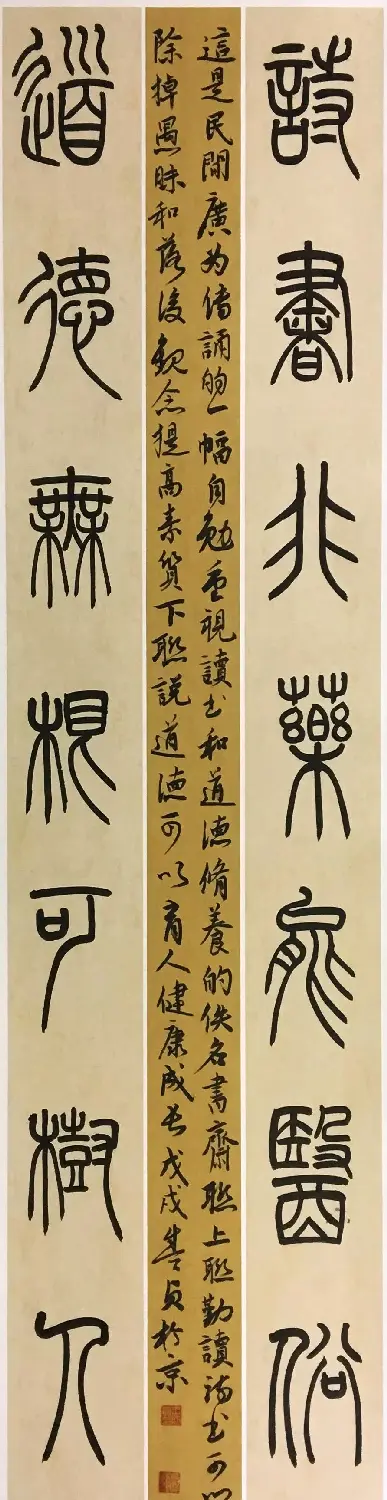 詩書非藥能醫俗
這是民間廣为傳誦的一幅自勉重視讀书和道德脩養的佚名書齋聯上聯勤讀詩书可以
除掉愚昧和落後觀念提高素質下聯説道德可以育人健康成长戊戌貞於京
道德無根可樹人